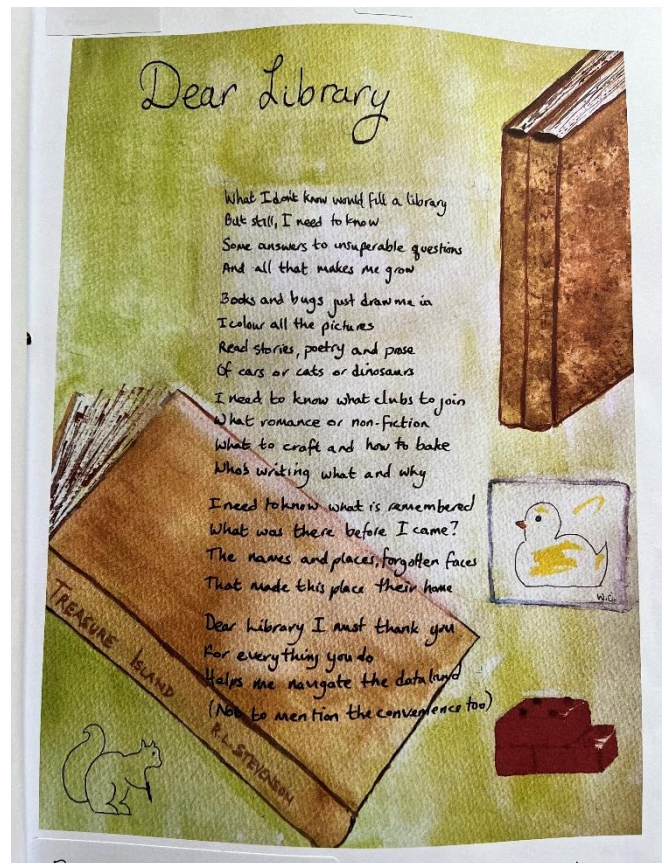 Dear Library
What I don't know would fill a library
But still, I need to know
Some answers to unsuperable questions
And all that makes me grow
Books and bugs just draw me in
I colour all the pictures
Read stories, poetry and prose
Of cars or cats or dinosaurs
I need to know what clubs to join
What romance or non-fiction
What to craft and how to bake
Who's writing what and why
I need to know what is remembered
What was there before I came?
The names and places, forgotten faces
That made this place their home
Dear Library I must thank you
For everything you do
Helps me navigate the data
(Not to mention the convenience too)
TREASURE ISLAND
R.L. STEVENSON